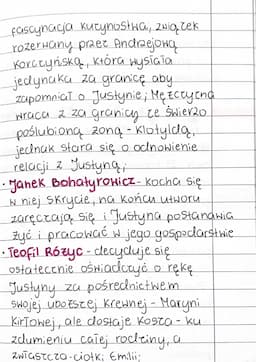 fascynacja kuzynostwa, związek
rozerwany przez Andrzejową
Korczyńską, która wysłała
jedynaka za granicę aby
zapomniał o Justynie; Mężczyzna
wraca z za granicy ze świeżo
poślubioną żoną - Klotyldą,
jednak stara się o odnowienie
relacji z Justyną;
• Janek Bohatyrowicz - kocha się
w niej skrycie, na końcu utworu
zaręczają się i Justyna postanawia
żyć i pracować w jego gospodarstwie
• Teofil Różyc - decyduje się
ostatecznie oświadczyć o rękę
Justyny za pośrednictwem
swojej uboższej krewnej - Maryni
Kirłowej, ale dostaje kosza - ku
zdumieniu całej rodziny, a
zwłaszcza - ciotki Emilii;